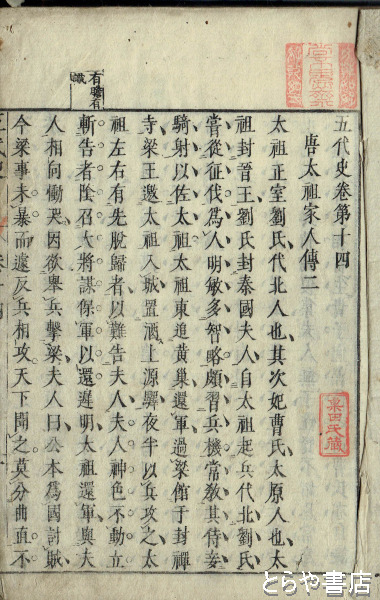 五代史卷第十四
唐太祖家人傳二
太祖正室劉氏代北人也其次妃曹氏太原人也太
祖封晉王劉氏封秦國夫人自太祖起兵代北劉氏
嘗從征伐爲人明敏多智略頗習兵機常教其侍妾
騎射以佐太祖太祖東追黃巢還軍過梁館于封禪
寺梁王邀太祖入城置酒上源驛夜半以兵攻之太
祖左右有先脫歸者以難告夫人夫人神色不動立
斬告者陰召大將謀保軍以還遲明太祖還軍與夫
人相向慟哭因欲舉兵擊梁夫人曰公本爲國討賊
今梁事未暴而遽反兵相攻天下聞之莫分曲直不
有膽有
識
とらや書店